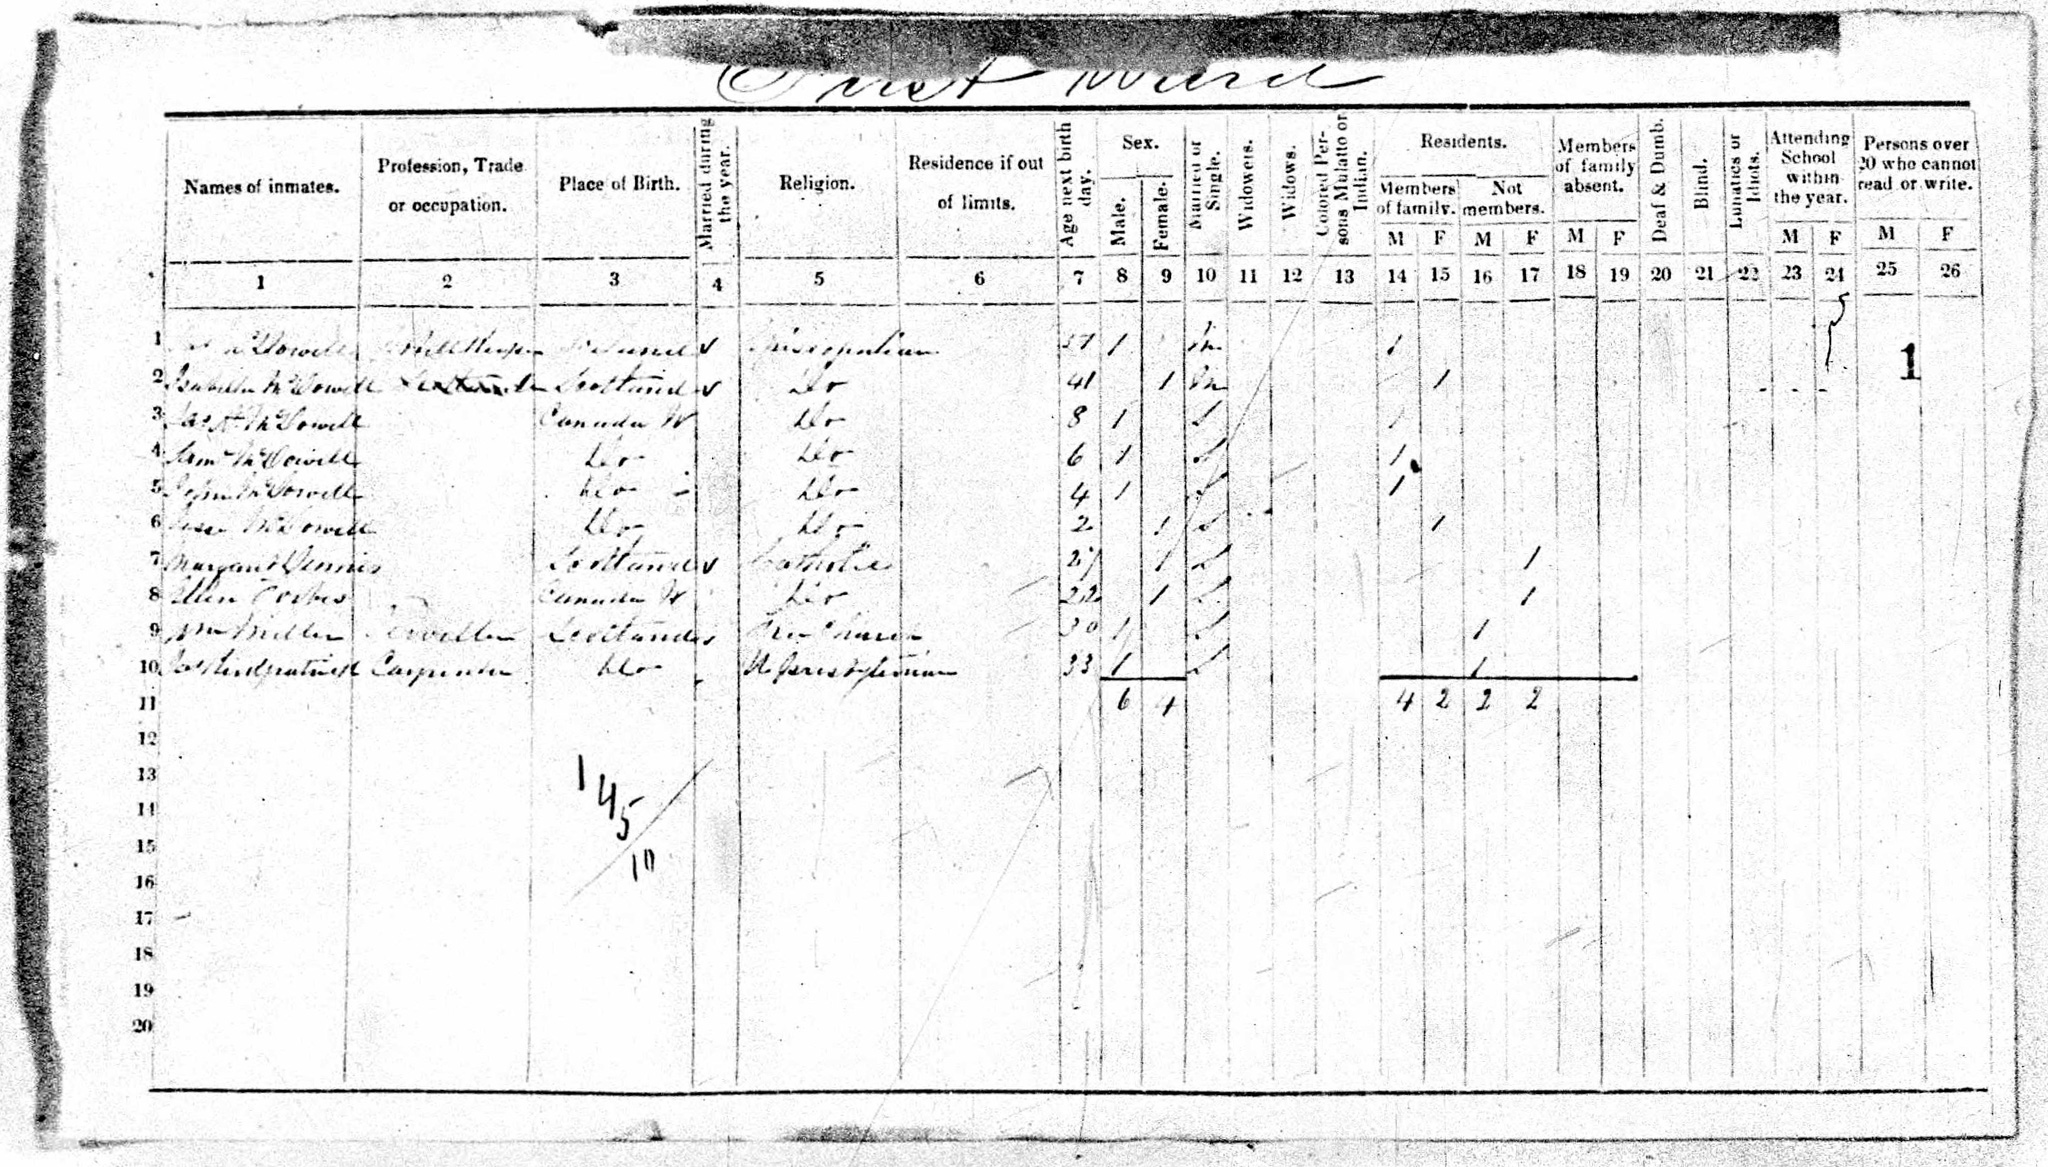 First Ward
Names of inmates. Profession, Trade or occupation. Place of Birth. Married during the year. Religion. Residence if out of limits. Age next birth day. Sex. Male. Female. Married or Single. Widowers. Widows. Colored Persons Mulatto or Indian. Residents. Members of family. M F Not members. M F Members of family absent. M F Deaf & Dumb. Blind. Lunatics or Idiots. Attending School within the year. M F Persons over 20 who cannot read or write. M F
1 2 3 4 5 6 7 8 9 10 11 12 13 14 15 16 17 18 19 20 21 22 23 24 25 26
1 McDowell Ireland Episcopalian 1 M 1 1
2 Isabella McDowell Scotland Do 41 1 M 1
3 Jas McDowell Canada W Do 8 1 S 1
4 Saml McDowell Do Do 6 1 S 1
5 John McDowell Do Do 4 1 S 1
6 McDowell Do Do 2 1 S 1
7 Margaret Dennis Scotland Catholic 1 S 1
8 Ellen Forbes Canada W Do 22 1 S 1
9 Wm Miller Scotland Free Church 30 1 S 1
10 Jas Kirkpatrick Carpenter Do U Presbyterian 33 1 S 1
11 6 4 4 2 2 2
12
13
14
15
16
17
18
19
20
145
10